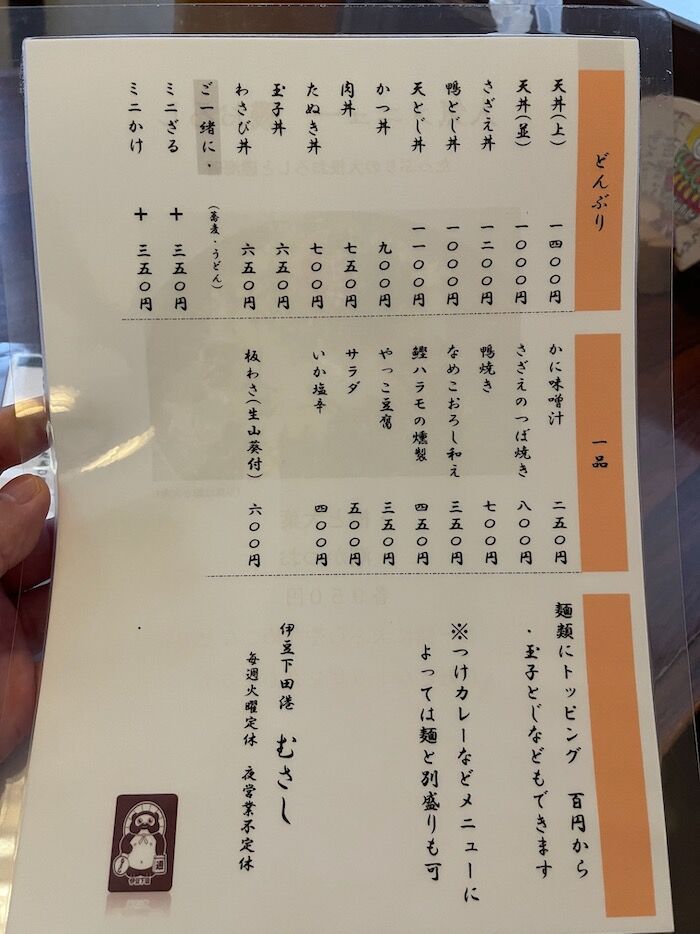 どんぶり
天丼(上) 一四〇〇円
天丼(並) 一〇〇〇円
さざえ丼 一二〇〇円
鴨とじ丼 一〇〇〇円
天とじ丼 一一〇〇円
かつ丼 九〇〇円
肉丼 七五〇円
たぬき丼 七〇〇円
玉子丼 六五〇円
わさび丼 六五〇円
ご一緒に・ (蕎麦・うどん)
ミニざる + 三五〇円
ミニかけ + 三五〇円
一品
かに味噌汁 二五〇円
さざえのつぼ焼き 八〇〇円
鴨焼き 七〇〇円
なめこおろし和え 三五〇円
鰹ハラモの燻製 四五〇円
やっこ豆腐 三五〇円
サラダ 五〇〇円
いか塩辛 四〇〇円
板わさ(生山葵付) 六〇〇円
麺類にトッピング 百円から
・玉子とじなどもできます
※つけカレーなどメニューに
よっては麺と別盛りも可
伊豆下田港 むさし
毎週火曜定休 夜営業不定休
通
伊豆下田